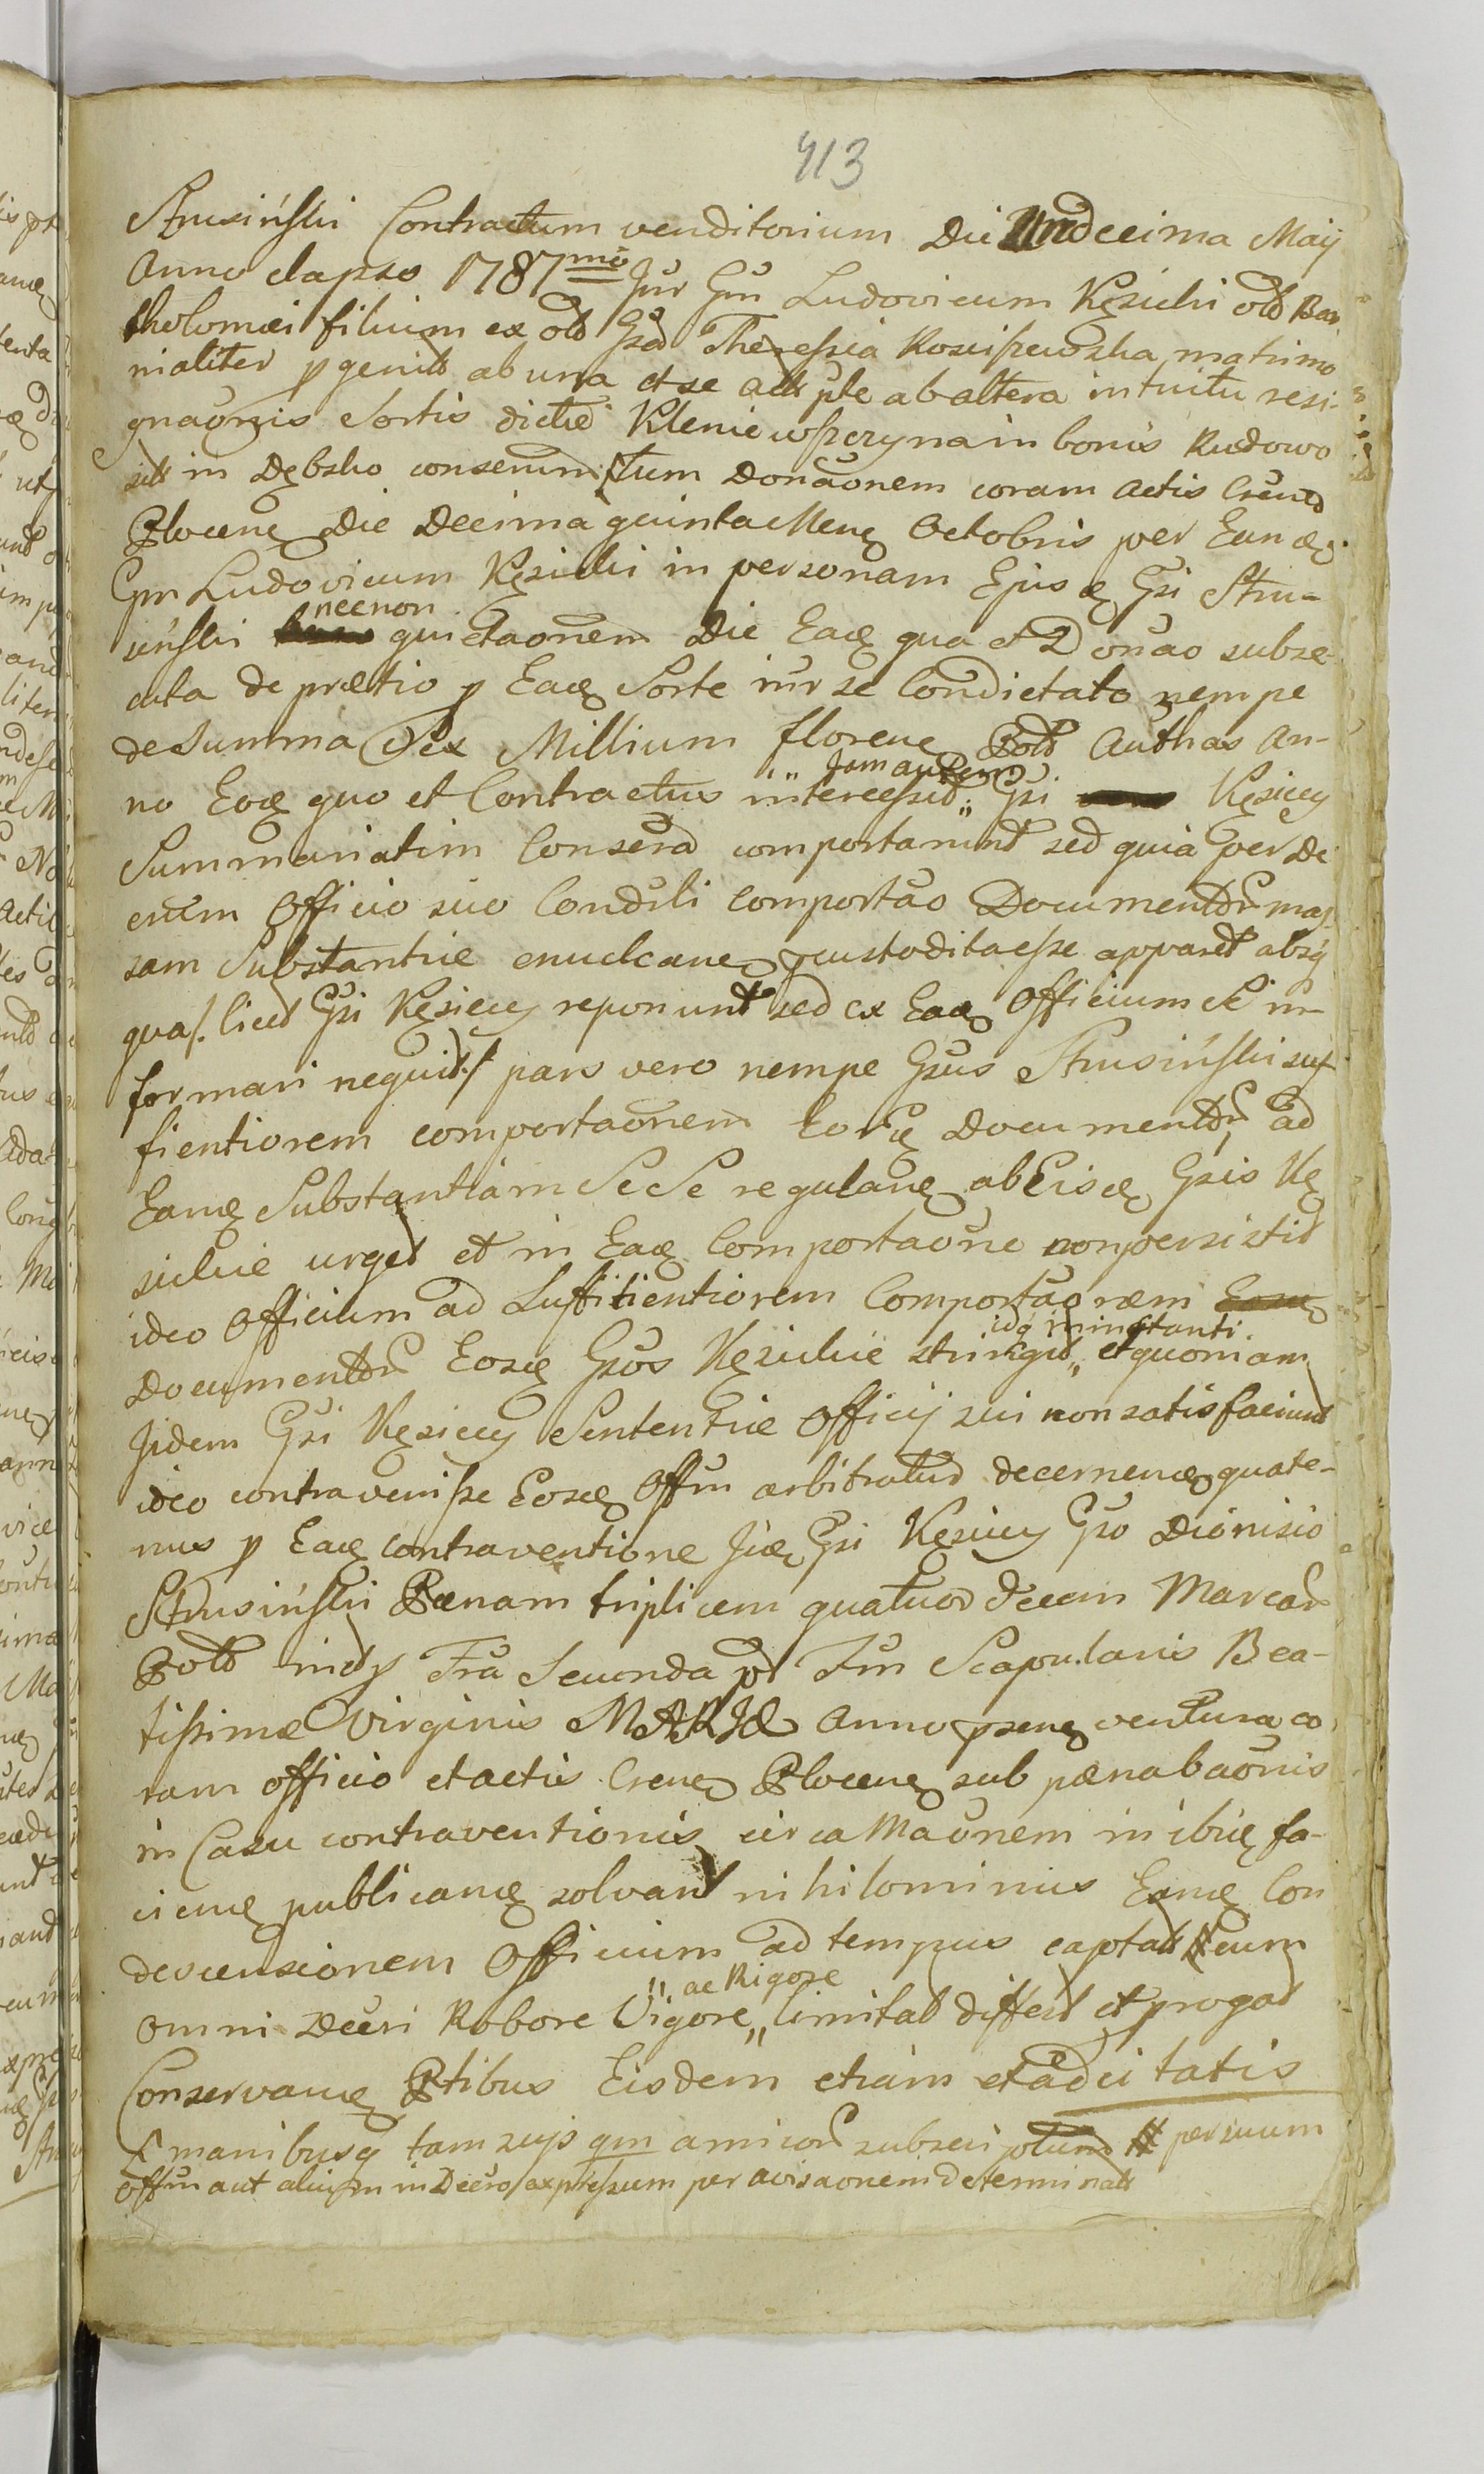 413
Strusiński Contractum venditorium Die Undecima Maij
Anno elapso 1787mo Jnr Gm Ludovicum Kęsicki olb Bar
tholomæi filium ex olb Gsd Theressia Kosciszewska matrimo
nialiter pgenit ab una et se act pte ab altera intuitu resi-
gnaonis Sortis dictæ Kleniewszczyna in bonis Rudowo
sit in Dębsko conserunt tum Donaonem coram Actis Crend
Plocenę Die Decima quinta Menę Octobris per Eundę
Gm Ludovicum Kęsicki in personam Ejusdę Gsi Stru-
sinski necnon quietaonem Die Eadę qua et Donao subse-
cuta de prætio p Eadę Sorte inr se Condictato nempe
de Summa Sex Millium florenę Polb Authas An-
no Eodę quo et Contractus intercessit Jam autem Gsi Kęsiccy
Summariatim Conserd comportarunt sed quia per De
crum Officio suo Condili comportao Documentor mas
sam Substantiæ enucleanę custodita esse apparet absq
qua /. licet Gsi Kęsiccy reponunt sed ex Eadę Officium Se in-
formari nequit ./ pars vero nempe Gsus Strusiński suf
ficientiorem comportaonem Eorę Documentor ad
Eamę Substantiam SeSe regulanę ab Eisdę Gsis Kę
sickie urget et in Eadę Comportaone non persistit
ideo Officium ad Suffitientiorem Comportaonem
Documentor Eosdę Gsos Kęsickie stringit idq ministanti. et quoniam
Jidem Gsi Kęsiccy Sententiæ Officij sui non satisfaciunt
ideo contravenisse Eosdę Offm arbitratur decernenę quate-
nus p Eadę contraventione Jidę Gsi Kęsiccy Gso Dionisio
Strusiński Pænam triplicem quatuor decem Marcar
Polb in et p Fra Secunda pt Fm Scapularis Bea-
tissimæ Virginis MARIÆ Anno psenę ventura co
ram officio et actis Crenę Plocenę sub pæna baonis
in Casu contraventionis circa Maonem inibię fa-
ciendę publicandę solvant nihilominus Eamę Con
descensionem Officium ad tempus captat # cum
omni Decri Robore Vigore ac Rigore limitat differt et progat
Conservanę Ptibus Eisdem etiam et adcitatis
manibusq tam suis qm amicor subscriptum # per suum
Offm aut alium in Decro expressum per avisaonem determinat